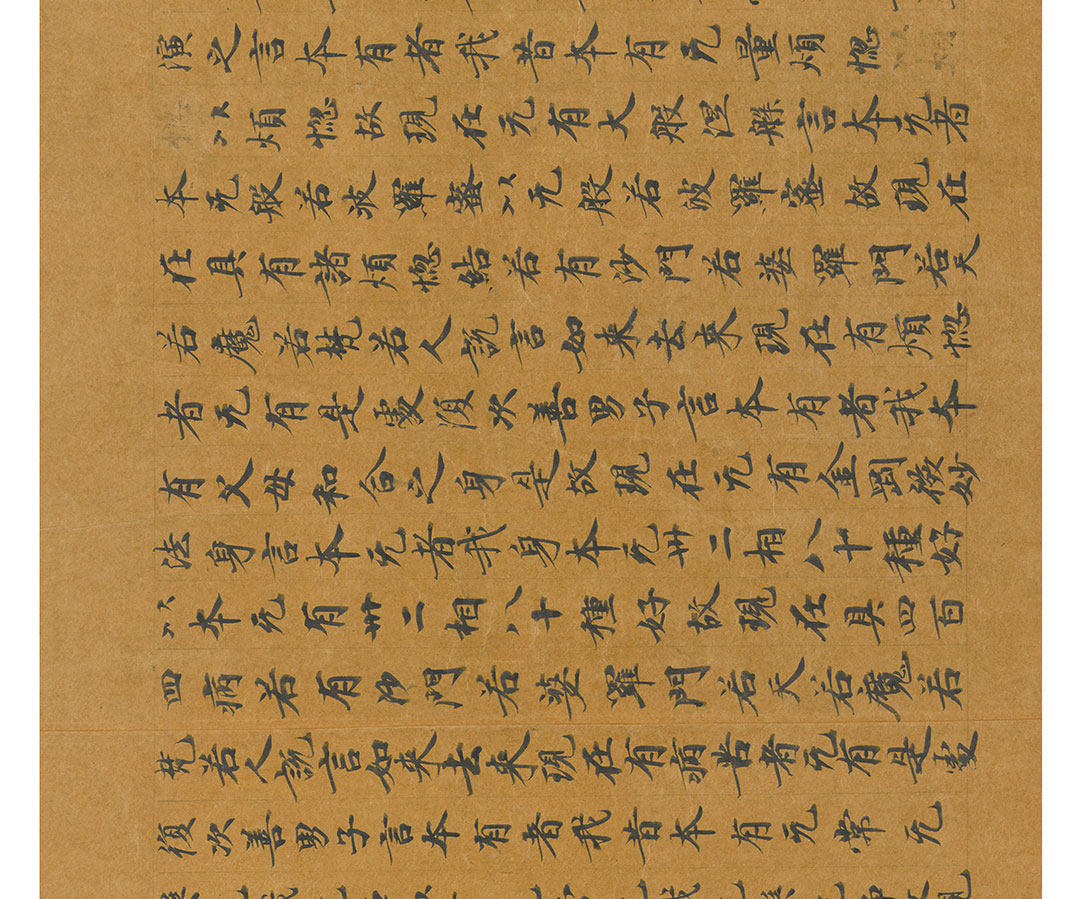 演之言本有者我昔本有无量煩惚
以煩惚故現在无有大般涅槃言本无者
本无般若波羅蜜以无般若波羅蜜故現在
在具有諸煩惚結若有沙門若婆羅門若天
若魔若梵若人說言如来去来現在有煩惚
者无有是處復次善男子言本有者我本
有父母和合之身是故現在无有金剛微妙
法身言本无者我身本无卅二相八十種好
以本无有卅二相八十種好故現在具四百
四病若有沙門若婆羅門若天若魔若
梵若人說言如来去来現在有病苦者无有是處
復次善男子言本有者我昔本有无常无